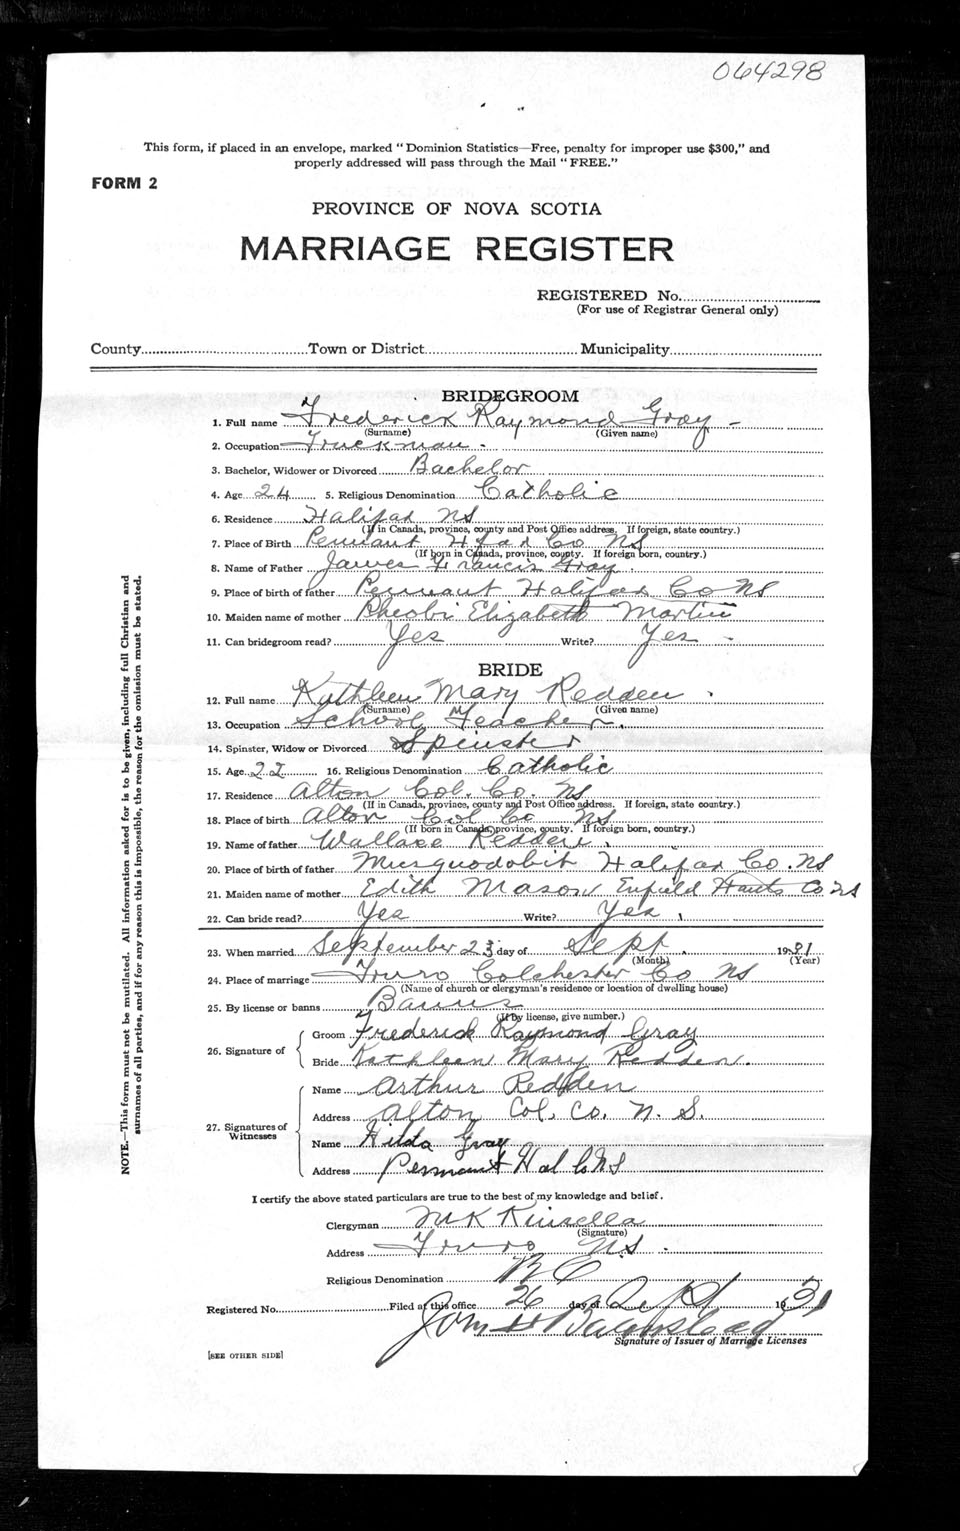 064298
This form, if placed in an envelope, marked "Dominion Statistics—Free, penalty for improper use $300," and
properly addressed will pass through the Mail "FREE."
FORM 2
PROVINCE OF NOVA SCOTIA
MARRIAGE REGISTER
REGISTERED No.
(For use of Registrar General only)
County Town or District Municipality
BRIDEGROOM
1. Full name Frederick Raymond Gray
(Surname) (Given name)
2. Occupation Truckman
3. Bachelor, Widower or Divorced Bachelor
4. Age 24 5. Religious Denomination Catholic
6. Residence Halifax NS
(If in Canada, province, county and Post Office address. If foreign, state country.)
7. Place of Birth Pennant Hfax Co NS
(If born in Canada, province, county. If foreign born, country.)
8. Name of Father James Francis Gray
9. Place of birth of father Pennant Halifax Co NS
10. Maiden name of mother Pheobi Elizabeth Martin
11. Can bridegroom read? Yes Write? Yes
BRIDE
12. Full name Kathleen Mary Redden
(Surname) (Given name)
13. Occupation School Teacher
14. Spinster, Widow or Divorced Spinster
15. Age 22 16. Religious Denomination Catholic
17. Residence Alton Col. Co. NS
(If in Canada, province, county and Post Office address. If foreign, state country.)
18. Place of birth Alton Col Co NS
(If born in Canada, province, county. If foreign born, country.)
19. Name of father Wallace Redden
20. Place of birth of father Musquodobit Halifax Co. NS
21. Maiden name of mother Edith Mason Enfield Hants Co NS
22. Can bride read? Yes Write? Yes
23. When married September 23 day of Sept. 1931
(Month) (Year)
24. Place of marriage Truro Colchester Co NS
(Name of church or clergyman's residence or location of dwelling house)
25. By license or banns Banns
(If by license, give number.)
26. Signature of Groom Frederick Raymond Gray
Bride Kathleen Mary Redden.
27. Signatures of Witnesses Name Arthur Redden
Address Alton Col. Co. N. S.
Name Hilda Gray
Address Pennant Hal Co NS
I certify the above stated particulars are true to the best of my knowledge and belief.
Clergyman Kinsella
(Signature)
Address Truro N.S.
Religious Denomination RC
Registered No. Filed at this office 26 day of Sept 1931
Signature of Issuer of Marriage Licenses
[SEE OTHER SIDE]
NOTE.—This form must not be mutilated. All information asked for is to be given, including full Christian and
surnames of all parties, and if for any reason this is impossible, the reason for the omission must be stated.